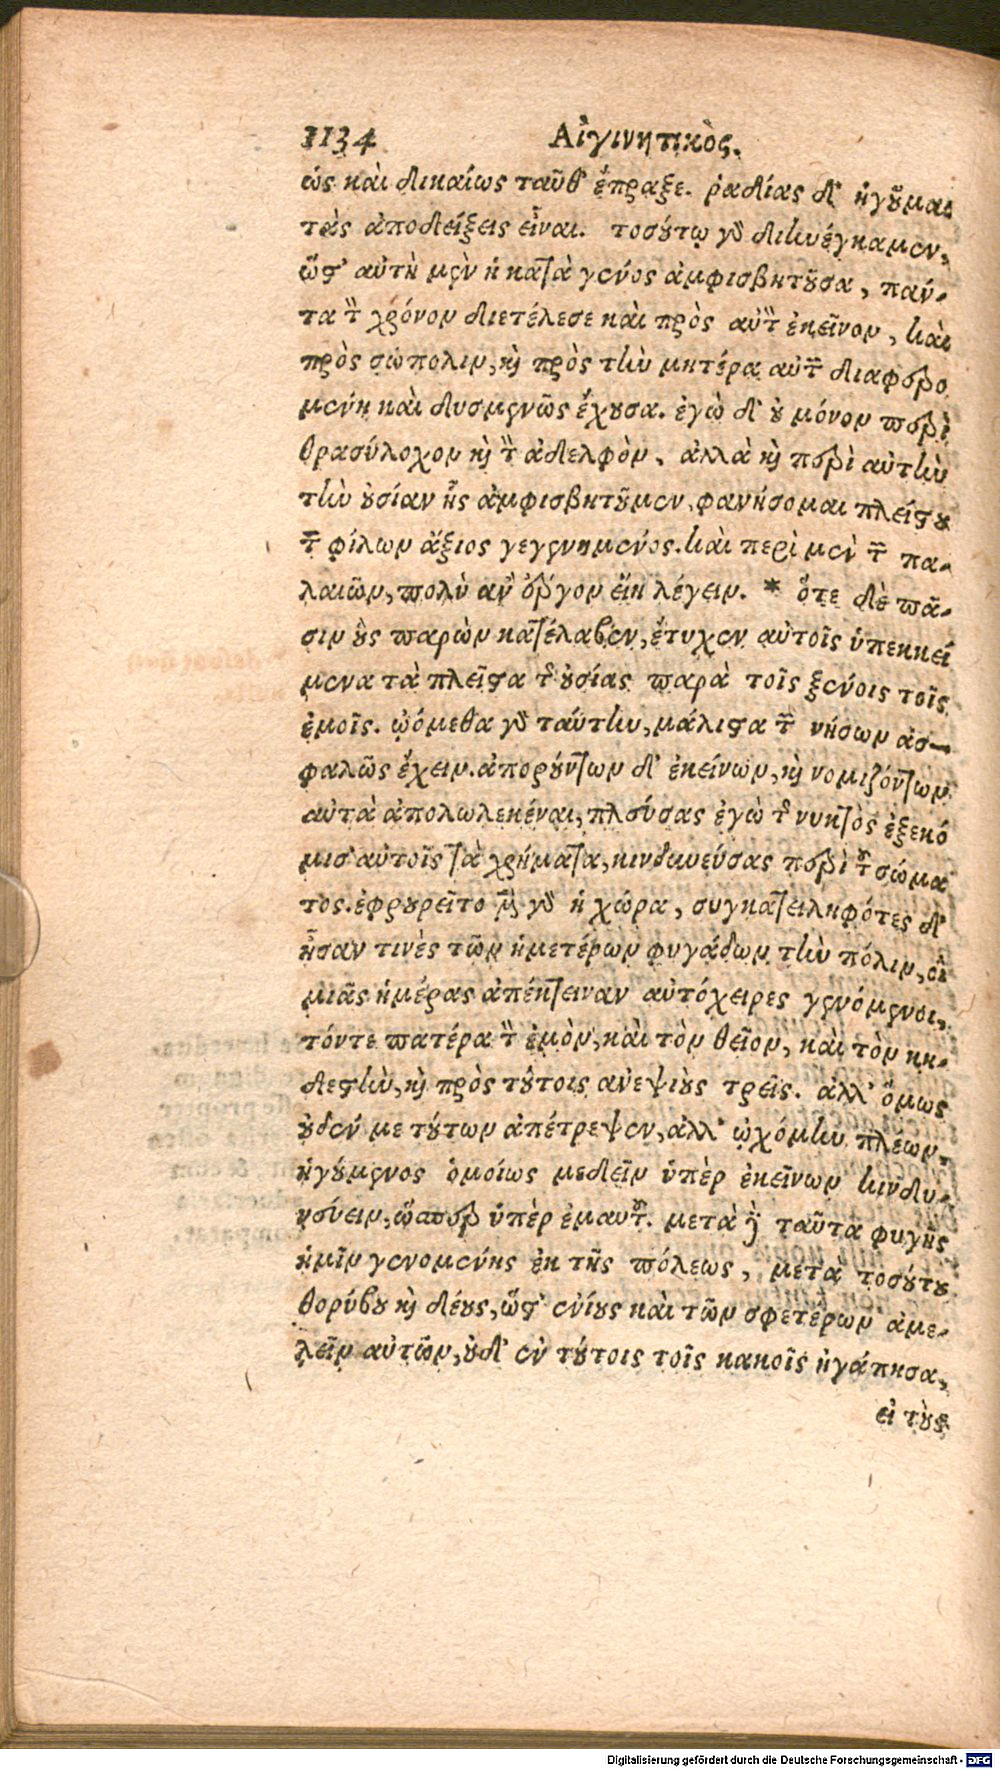 1134 Αἰγινητικὸς.
ὡς καὶ δικαίως ταῦθ' ἔπραξε. ῥᾳδίας δ' ἡγοῦμαι
τὰς ἀποδείξεις εἶναι. τοσούτῳ γὰρ διηνέγκαμεν,
ὥστ' αὐτὴ μὲν ἡ κατὰ γένος ἀμφισβητοῦσα, πάν-
τα τὸν χρόνον διετέλεσε καὶ πρὸς αὐτὸν ἐκεῖνον, καὶ
πρὸς σώπολιν, καὶ πρὸς τὴν μητέρα αὐτῶν διαφερο
μένη καὶ δυσμενῶς ἔχουσα. ἐγὼ δ' οὐ μόνον περὶ
θρασύλοχον καὶ τὸν ἀδελφὸν, ἀλλὰ καὶ περὶ αὐτὴν
τὴν οὐσίαν ἧς ἀμφισβητοῦμεν, φανήσομαι πλείστου
τῶν φίλων ἄξιος γεγενημένος. καὶ περὶ μὲν τῶν πα-
λαιῶν, πολὺ ἂν ἔργον εἴη λέγειν. * ὅτε δὲ πᾶ-
σιν οὓς παρὼν κατέλαβεν, ἔτυχεν αὐτοῖς ὑπεκκεί
μενα τὰ πλεῖστα τῆς οὐσίας παρὰ τοῖς ξένοις τοῖς
ἐμοῖς. ᾠόμεθα γὰρ ταύτην, μάλιστα τῶν νήσων ἀσ-
φαλῶς ἔχειν. ἀπορούντων δ' ἐκείνων, καὶ νομιζόντων
αὐτὰ ἀπολωλεκέναι, πλεύσας ἐγὼ τῆς νυκτὸς ἐξεκό
μισ' αὐτοῖς τὰ χρήματα, κινδυνεύσας περὶ τοῦ σώμα
τος. ἐφρουρεῖτο μὲν γὰρ ἡ χώρα, συγκατειληφότες δ'
ἦσαν τινὲς τῶν ἡμετέρων φυγάδων τὴν πόλιν, οἳ
μιᾶς ἡμέρας ἀπέκτειναν αὐτόχειρες γενόμενοι,
τόντε πατέρα τὸν ἐμὸν, καὶ τὸν θεῖον, καὶ τὸν κη-
δεστὴν, καὶ πρὸς τούτοις ἀνεψιοὺς τρεῖς. ἀλλ' ὅμως
οὐδέν με τούτων ἀπέτρεψεν, ἀλλ' ᾠχόμην πλέων,
ἡγούμενος ὁμοίως μεδεῖν ὑπὲρ ἐκείνων κινδυ-
νεύειν, ὥσπερ ὑπὲρ ἐμαυτοῦ. μετὰ δὲ ταῦτα φυγῆς
ἡμῖν γενομένης ἐκ τῆς πόλεως, μετὰ τοσούτου
θορύβου καὶ δέους, ὥστ' ἐνίους καὶ τῶν σφετέρων ἀμε-
λεῖν αὐτῶν, οὐδ' ἐν τούτοις τοῖς κακοῖς ἠγάπησα,
εἰ τοὺς
Digitalisierung gefördert durch die Deutsche Forschungsgemeinschaft - DFG